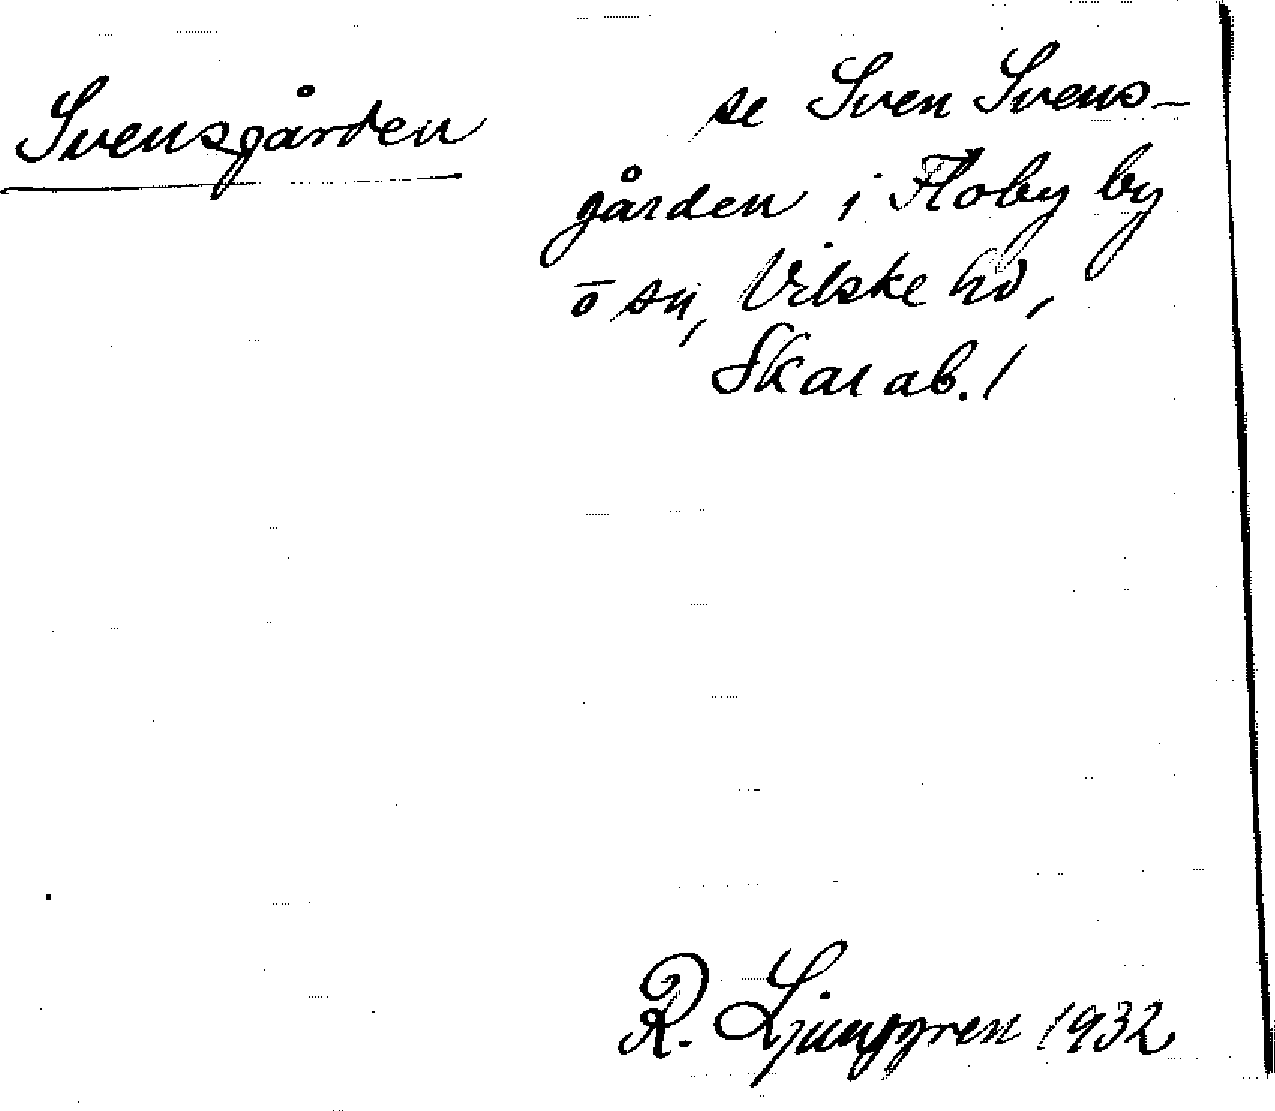 Svensgården
se Sven Svens-
gården i Floby by
o sn, Vilske hd,
Skarab. /
R. Ljunggren 1932